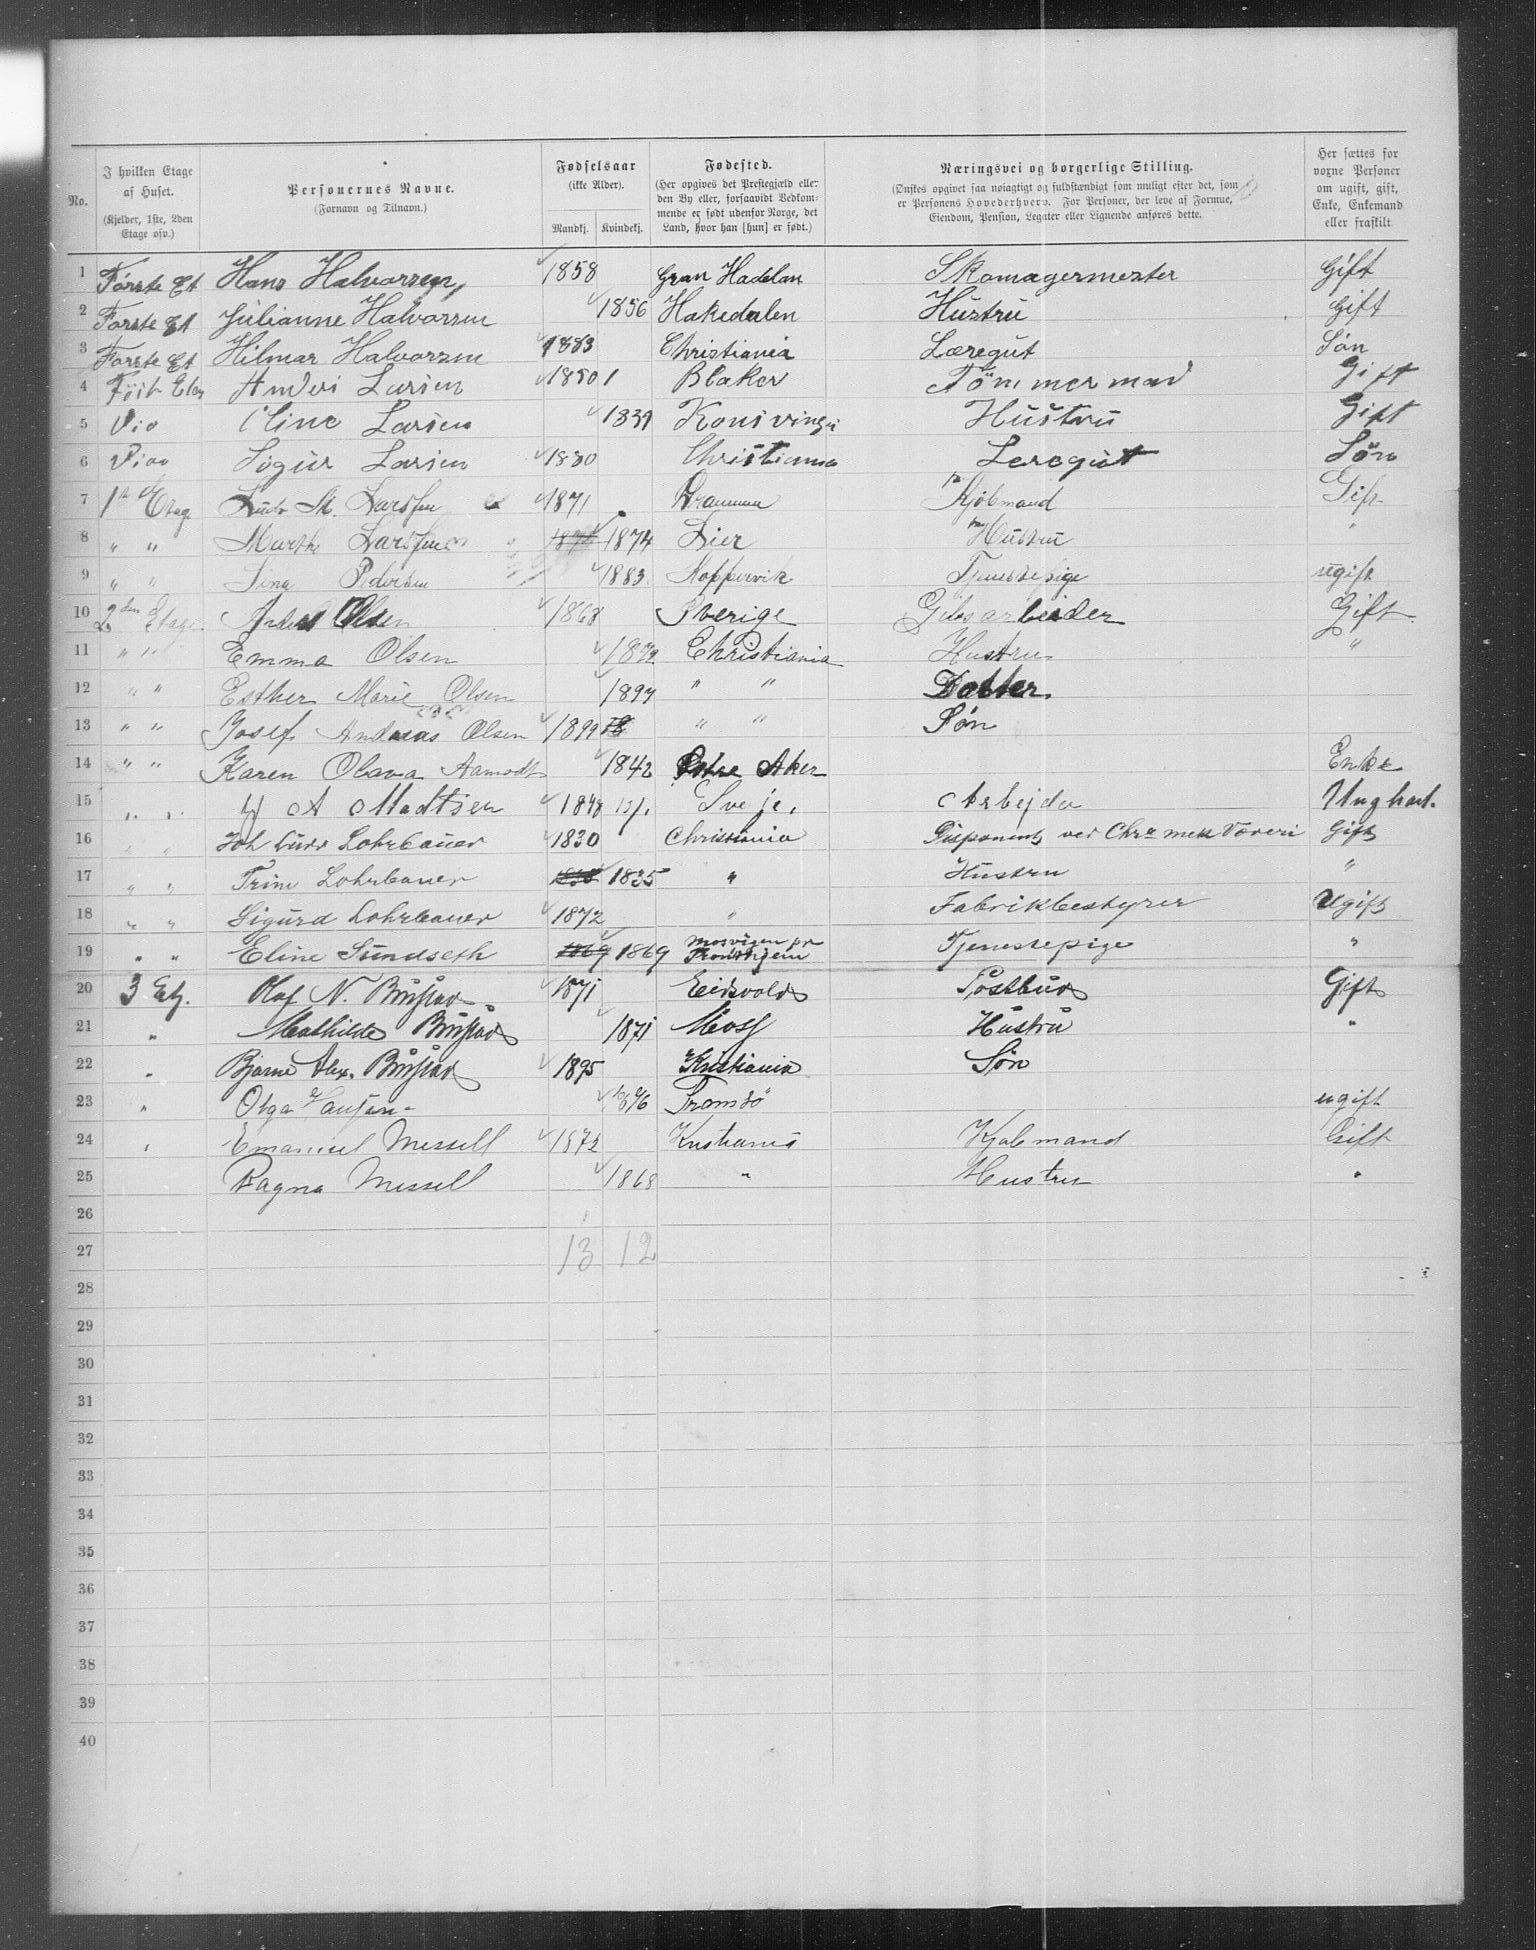 No.
I hvilken Etage af Huset.
(Kjelder, 1ste, 2den Etage osv.)
Personernes Navne.
(Fornavn og Tilnavn.)
Fødselsaar
(ikke Alder).
Mandkj. Kvindekj.
Fødested.
(Her opgives det Prestegjæld eller den By eller, forsaavidt Vedkommende er født udenfor Norge, det Land, hvor han [hun] er født.)
Næringsvei og borgerlige Stilling.
(Ønskes opgivet saa nøiagtigt og fuldstændigt som muligt efter det, som er Personens Hovederhverv. For Personer, der leve af Formue, Eiendom, Pension, Legater eller Lignende anføres dette.
Her sættes for voxne Personer om ugift, gift, Enke, Enkemand eller fraskilt
1 Første Et Hans Halvorsen 1858 Gran Hadelan Skomagermester Gift
2 Første Et Julianne Halvorsen 1856 Hakedalen Hustru Gift
3 Første Et Hilmar Halvorsen 1883 Christiania Læregut Søn
4 Anders Larsen 1850 Blaker Tömmermad Gift
5 Dio Oline Larsen 1839 Konsvinger Hustru Gift
6 Sigur Larsen 1880 Christiania Leregut Sön
7 1ste Etag. Ludv M. Larssen 1871 Drammen Kjøbmand Gift
8 " " Marthe Larssen 1874 Lier Hustru "
9 " " Lina Pedersen 1883 Koppervik Tjenestepige ugift
10 2den Etage Anders Olsen 1868 Sverige Gasarbeider Gift.
11 " " Emma Olsen 1872 Christiania Hustru "
12 " " Esther Marie Olsen 1897 " " Datter.
13 " " Josef Andreas Olsen 1899 " " Søn
14 " " Karen Olava Aamodt 1842 Østre Aker Enke
15 " " A Madtsen 1848 Sveje. Arbejder
16 " " Joh Ludv Lohrbauer 1830 Christiania Disponent ved Chra mek Væveri Gift
17 " " Trine Lohrbauer 1835 " Hustru "
18 " " Sigurd Lohrbauer 1872 " Fabrikbestyrer Ugift
19 " " Eline Sundseth 1869 1869 Mosvigen pr Trondhjem Tjenestepige "
20 3 Etg. Olaf N. Bústad 1871 Eidsvold Postbud Gift
21 " Mathilde Bústad 1871 Moss Hustru "
22 " Bjarne Alex. Bústad 1895 Kristiania Søn
23 " Olga Hansen 1876 Tromsö ugift
24 " Emanuel Messell 1872 Kristiania Kjøbmand Gift
25 Ragna Messell 1868 " Hustru "
26
27 13 12
28
29
30
31
32
33
34
35
36
37
38
39
40